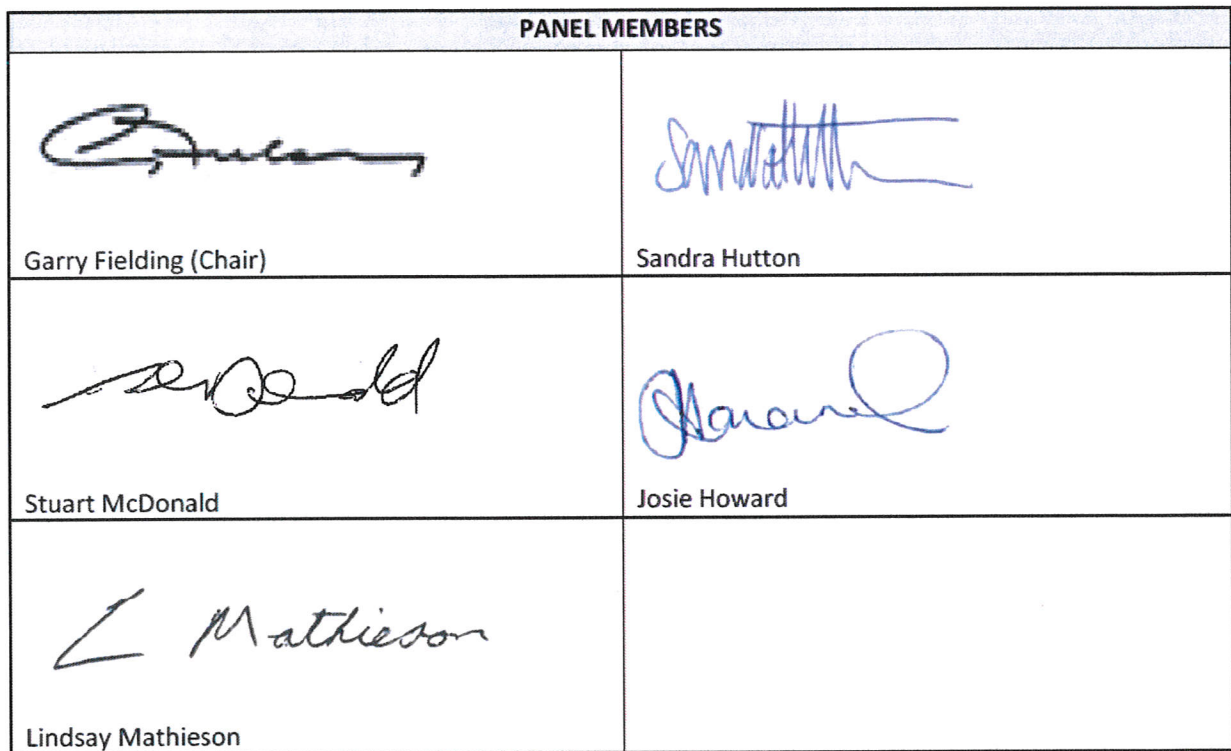 PANEL MEMBERS
Garry Fielding (Chair)
Sandra Hutton
Stuart McDonald
Josie Howard
L Mathieson
Lindsay Mathieson